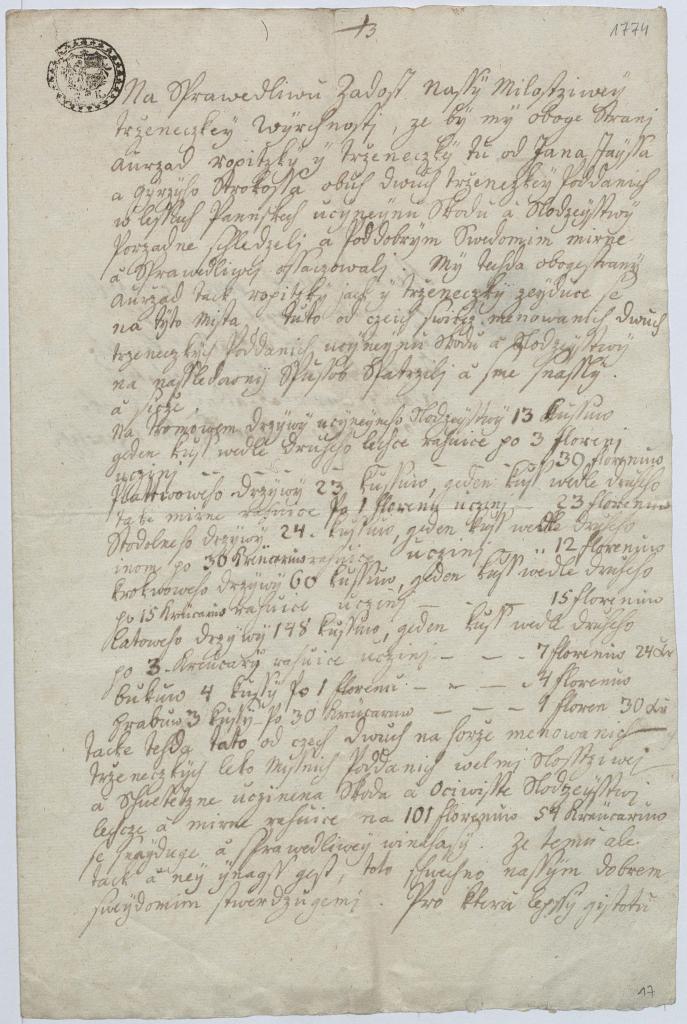 13
1774
Na Sprawedliwu Zadost Nassy Milostziwey
trzeneczkey Wyrchnosti, ze by my oboge Stranj
Aurzad ropitzky y trzeneczky tu od Jana Jayssa
a Gyrzyho Strokossa obuch dwuch trzeneczkey Poddanich
w lessych Panuskech ucyneynu Skodu a Slodzeystwy
Porzadne schledzelj a Poddobrym Swedomim mirne
a Sprawedliwej ossaczowalj. My tehda obogestrany
Aurzad tack ropitzky jack y trzeneczky zeyduce se
na tyto mista tuto od czech swrchu menowanich dwuch
trzeneczkych Poddanich ucyneynu Skodu a Slodzeystwy
na nassledowny Spussob Spatrzilj a sme snassly.
a sicze,
Na Romowem drzywy ucyneyneho Slodzeystwy 13 kussuw
geden kuss wedle druheho lehce rahuice po 3 florenj
uczinj - - - - 39 florenuw
Platwoweho drzywy 23 kussuw, geden kuss wedle druheho
take mirne rahuice Po 1 florenu uczinj - 23 florenuw
Stodolneho drzywy 24. kussuw, geden kuss wedle druheho
inom po 30 Kreucaruw rahuice uczinj - " 12 florenuw
krokwoweho drzywy 60 kussuw, geden kuss wedle druheho
po 15 Kreucaruw rahuice uczinj - - 15 florenuw
Latoweho drzywy 148 kussuw, geden kuss wedle druheho
po 3 Kreucary rahuice uczinj - - - 7 florenuw 24 Kr
bukuw 4 kussy Po 1 florenu - - - 4 florenuw
hrabuw 3 kussy Po 30 Kreucaruw - - - 1 floren 30 Kr
tacke tehda tato od czech dwuch na horze menowanich
trzeneczkych leko Mislnich Poddanich welmj slosstziwej
a Schuetetzne uczinena Skoda a Ociwiste Slodzeystwj
lehcze a mirne rahuice na 101 florenuw 54 Kreucaruw
se snayduge a sprawedliwey winchasy. Ze temu ale
tack a ney ynagss gest, toto swechno nassym dobrem
sweydomim stwerdzugemj. Pro kteru lepssy gistotu
17